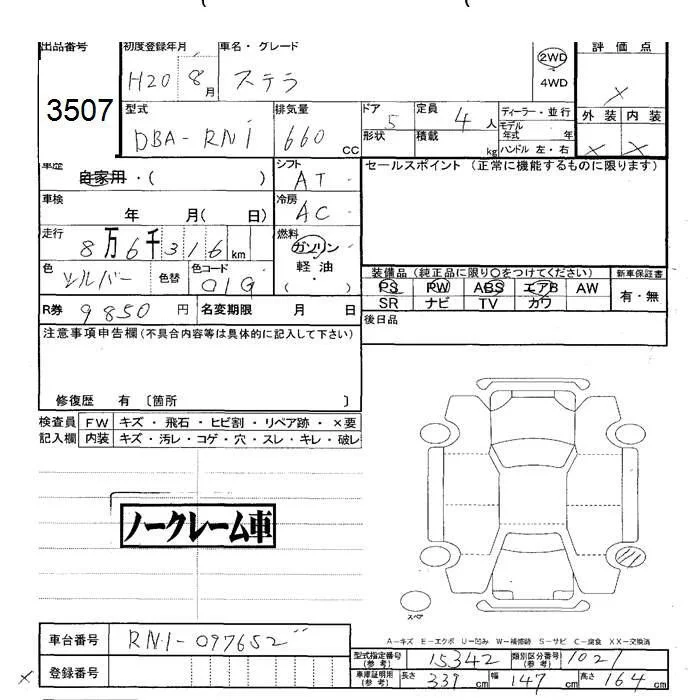 出品番号 初度登録年月 車名・グレード 評価点
3507 H20 8月 ステラ 2WD 4WD ×
型式 排気量 ドア 定員 ディーラー・並行 外装 内装
DBA-RN1 660 CC 5 4人 モデル年式 年 × ×
形状 積載 kg ハンドル 左・右
車歴 自家用・( ) シフト AT セールスポイント (正常に機能するものに限ります)
車検 年 月( 日) 冷房 AC
走行 8万6千316km 燃料 ガソリン 軽油 ( ・ )
色 シルバー 色替 色コード 01G 装備品 (純正品に限り〇をつけてください) 新車保証書
PS PW ABS エアB AW 有・無
SR ナビ TV カワ
R券 9850円 名変期限 月 日 後日品
注意事項申告欄(不具合内容等は具体的に記入して下さい)
修復歴 有 〔箇所 〕
検査員記入欄 FW キズ・飛石・ヒビ割・リペア跡・×要
内装 キズ・汚レ・コゲ・穴・スレ・キレ・破レ
ノークレーム車
スペア
A-キズ E-エクボ U-凹み W-補修跡 S-サビ C-腐食 XX-交換済
車台番号 RN1-097652
登録番号
型式指定番号(参考) 15342 類別区分番号(参考) 1021
× 車庫証明用(参考) 長さ 339cm 幅 147cm 高さ 164cm